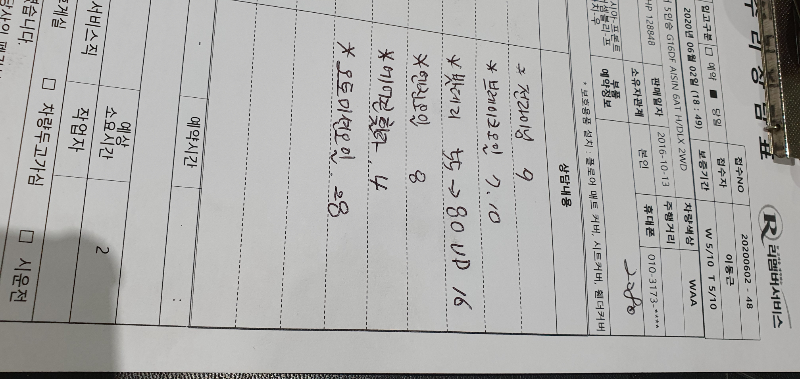 수리상담표
R 리멤버서비스
접수NO 20200602 - 48
입고구분 □ 예약 ■ 당일 접수자 이용근
2020년 06월 02일 (18 : 49) 보증기간 W 5/10 T 5/10
5인승 G16DF AISIN 6AT H/DLX 2WD 차량색상 WAA
HP 128848 판매일자 2016-10-13 주행거리
소유자관계 본인 휴대폰 010-3173-****
부품 예약정보
* 보호용품 설치: 플로어 매트 커버, 시트커버, 휠더커버
상담내용
* 전라이닝 9
* 브레이크오일 7, 10
* 밧데리 70 → 80 UP 16
* 엔진오일 8
* 에어컨필터. 4
* 오토미션오일. 28
예약시간 :
예상 소요시간 2
서비스직 작업자
□ 차량두고가심 □ 시운전